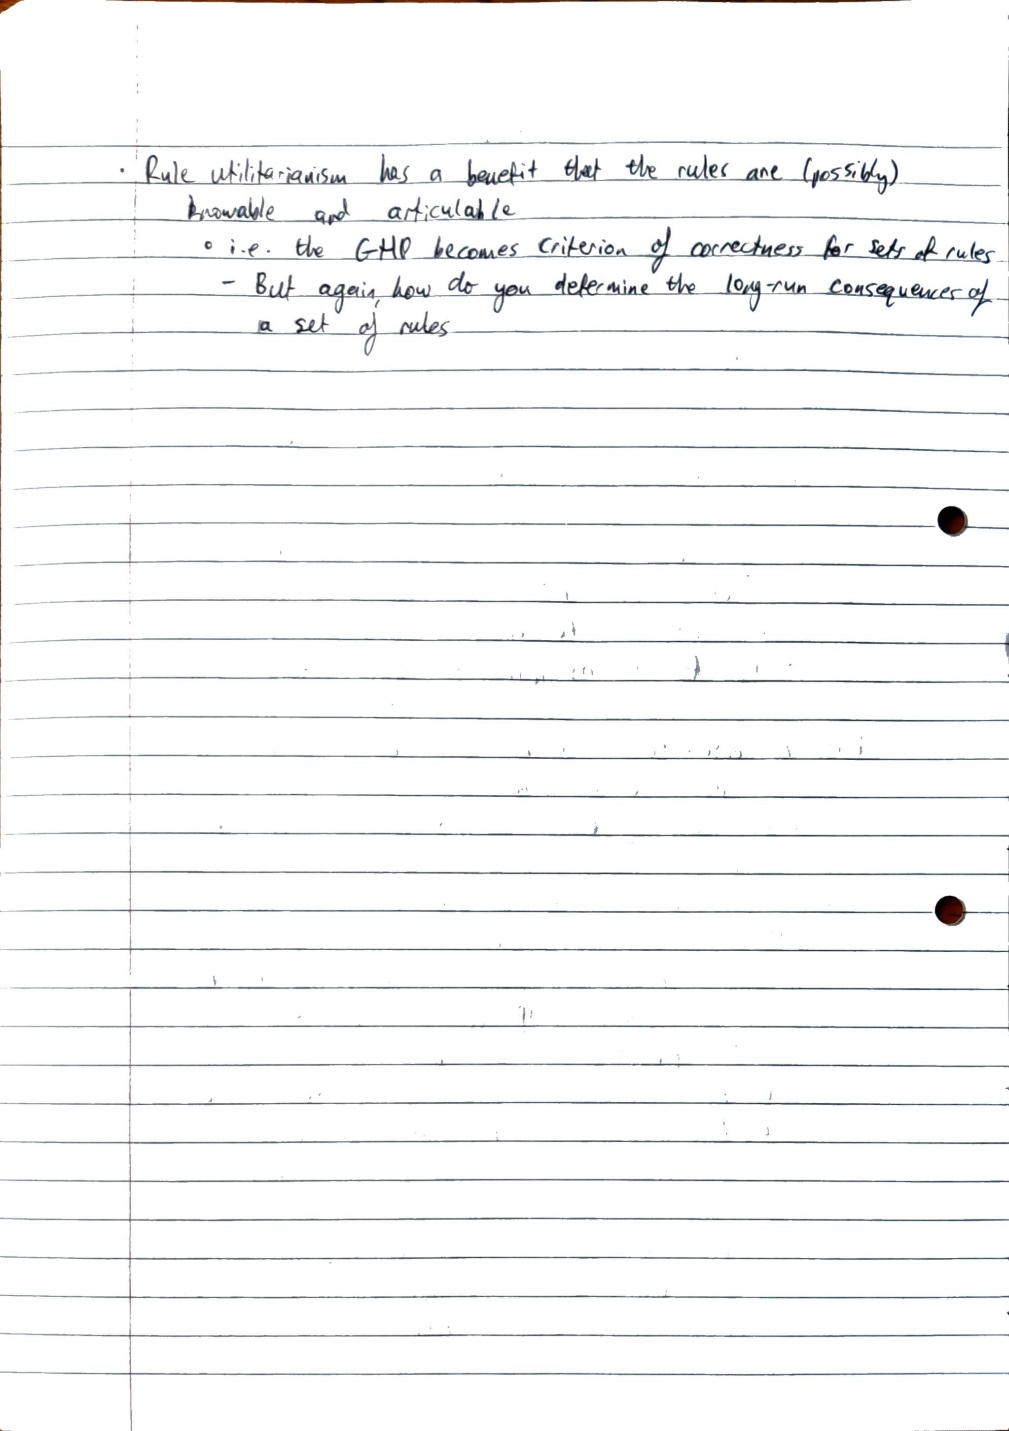 · Rule utilitarianism has a benefit that the rules are (possibly)
knowable and articulable
◦ i.e. the GHP becomes criterion of correctness for sets of rules
- But again, how do you determine the long-run consequences of
a set of rules